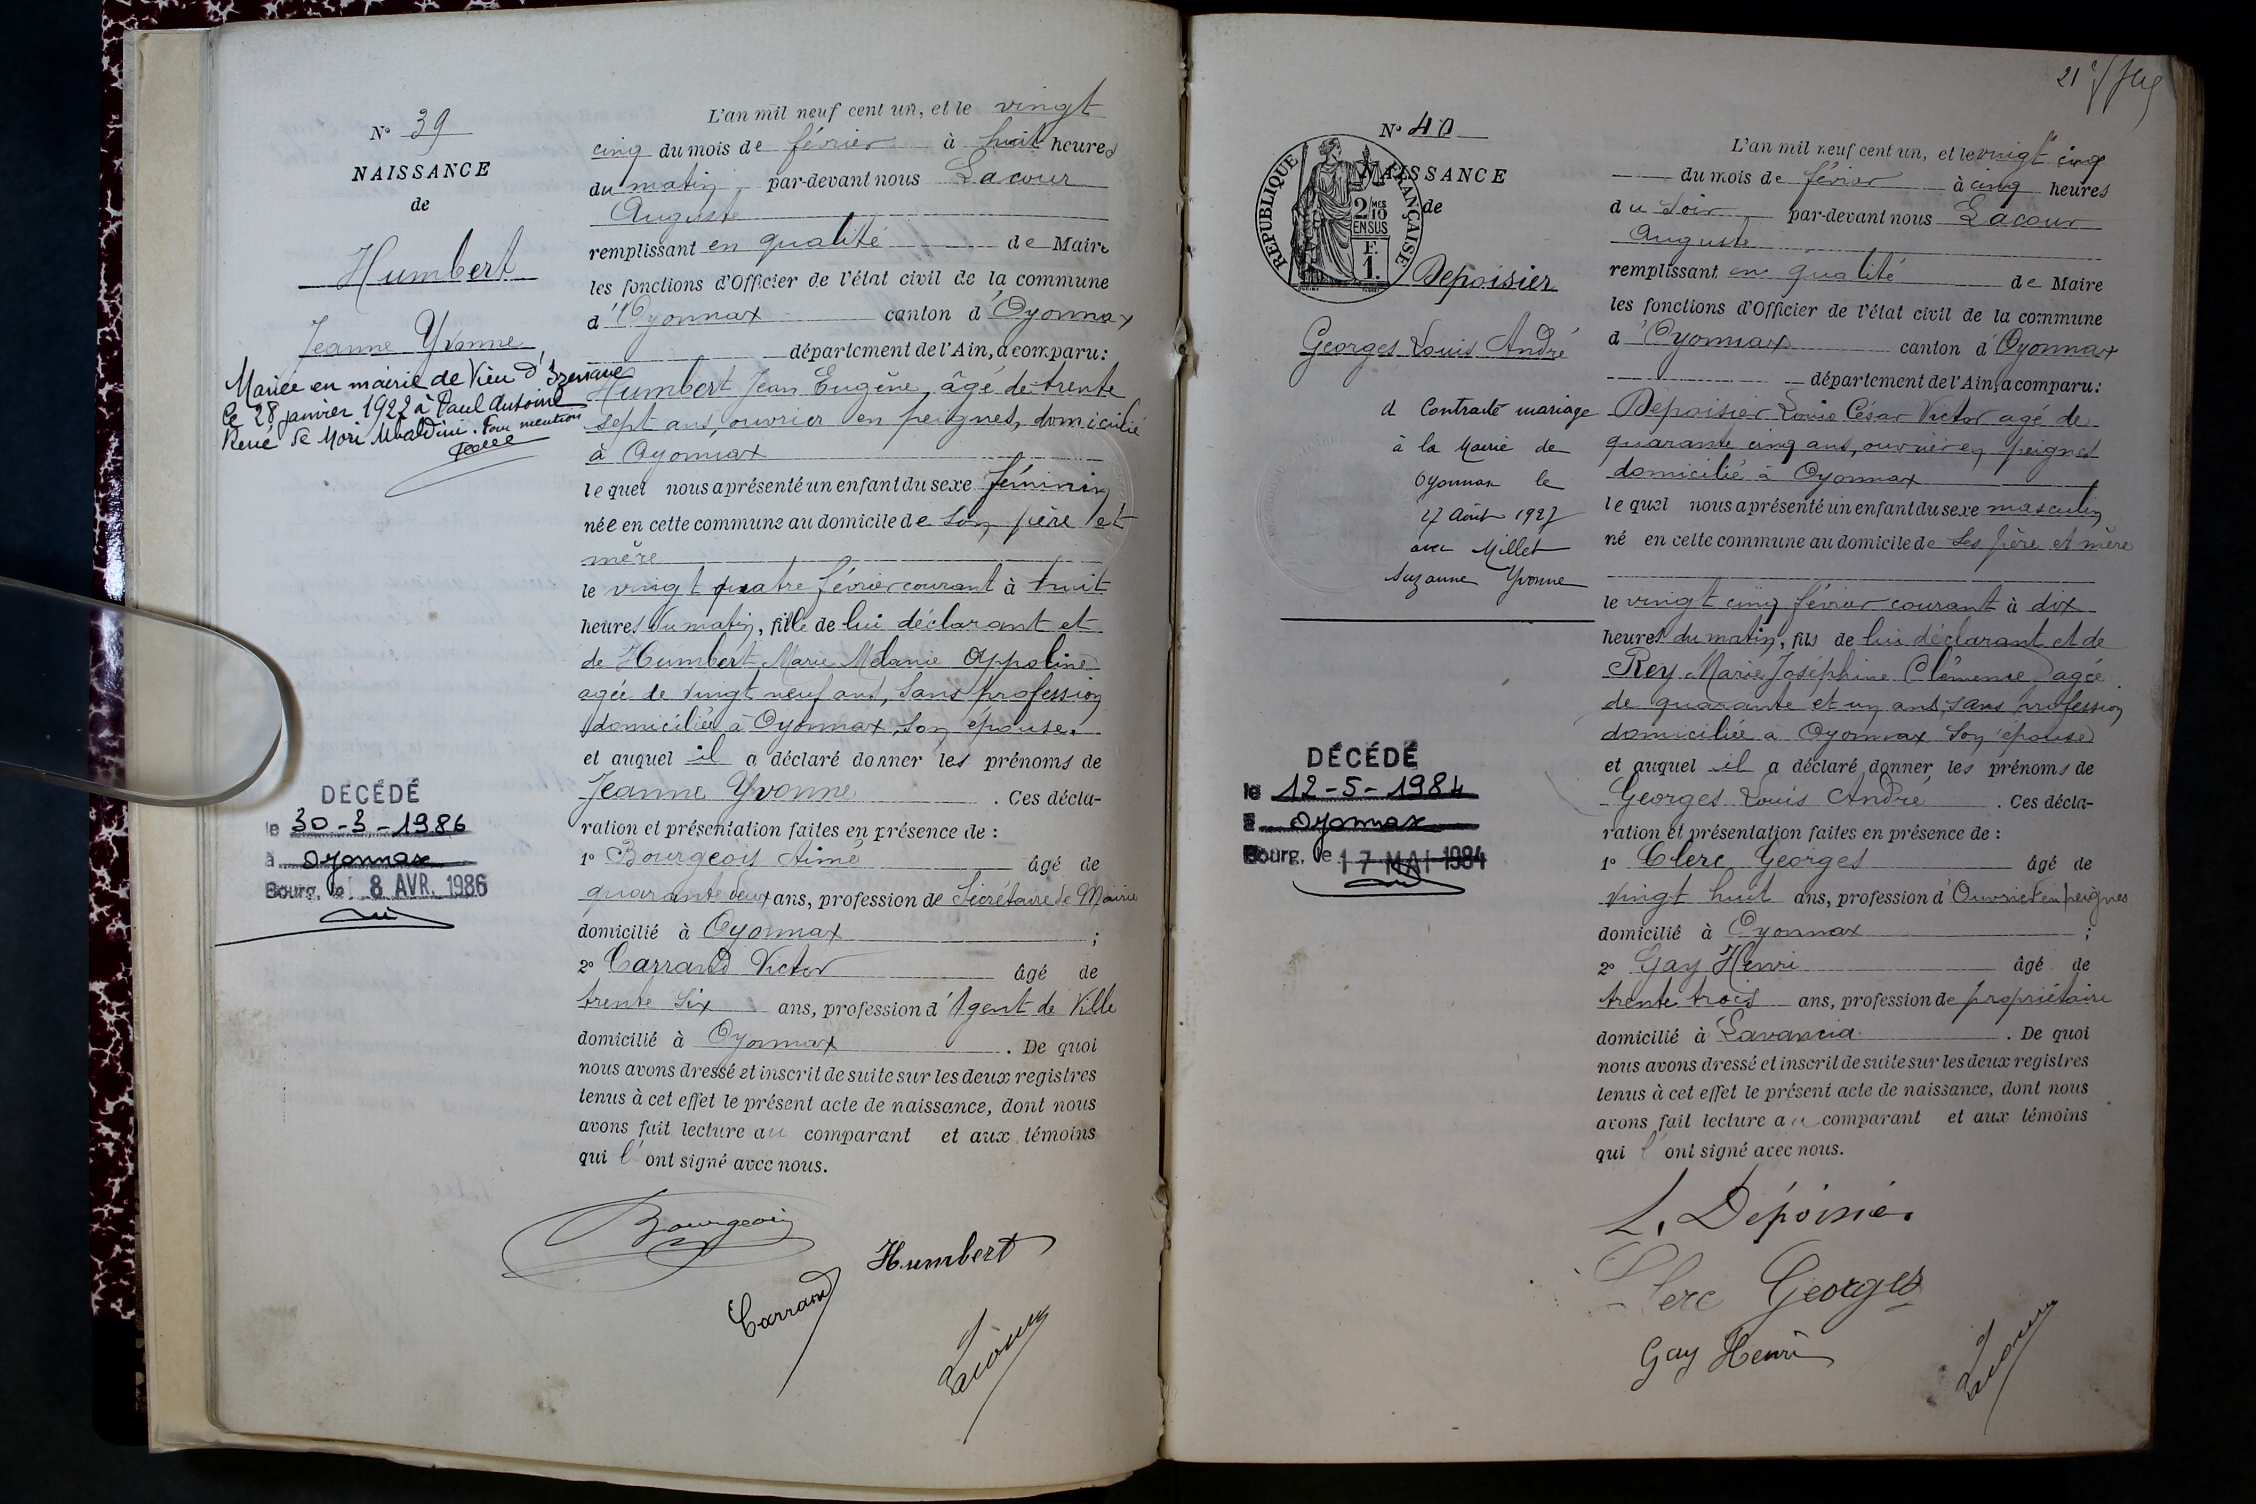 N° 39
NAISSANCE
de
Humbert
Jeanne Yvonne
Mariée en mairie de Vieu d'Izenave
le 28 janvier 1922 à Paul Antoine
René de Mori Ubaldini. Pour mention
DÉCÉDÉ
le 30-3-1986
à Oyonnax
Bourg, le 8 AVR. 1986
L'an mil neuf cent un, et le vingt
cinq du mois de février à huit heures
du matin par-devant nous Lacour
Auguste
remplissant en qualité de Maire
les fonctions d'Officier de l'état civil de la commune
d'Oyonnax canton d'Oyonnax
département de l'Ain, a comparu:
Humbert Jean Eugène, âgé de trente
sept ans, ouvrier en peignes, domicilié
à Oyonnax
lequel nous a présenté un enfant du sexe féminin
née en cette commune au domicile de son père et
mère
le vingt quatre février courant à huit
heures du matin, fille de lui déclarant et
de Humbert Marie Mélanie Appoline
agée de vingt neuf ans, sans profession
domiciliée à Oyonnax, son épouse.
et auquel il a déclaré donner les prénoms de
Jeanne Yvonne . Ces décla-
ration et présentation faites en présence de :
1° Bourgeois Aimé âgé de
quarante deux ans, profession de Secrétaire de Mairie
domicilié à Oyonnax ;
2° Carrand Victor âgé de
trente six ans, profession d'Agent de Ville
domicilié à Oyonnax . De quoi
nous avons dressé et inscrit de suite sur les deux registres
tenus à cet effet le présent acte de naissance, dont nous
avons fait lecture au comparant et aux témoins
qui l'ont signé avec nous.
Bourgeois
Humbert
Carrand
Lacour
21
N° 40
NAISSANCE
de
RÉPUBLIQUE FRANÇAISE
2/10 MES
EN SUS
F.
1.
Depoisier
Georges Louis André
A Contracté mariage
à la Mairie de
Oyonnax le
27 Août 1927
avec Millet
Suzanne Yvonne
DÉCÉDÉ
le 12-5-1984
à Oyonnax
Bourg, le 17 MAI 1984
L'an mil neuf cent un, et le vingt cinq
du mois de février à cinq heures
du soir par-devant nous Lacour
Auguste
remplissant en qualité de Maire
les fonctions d'Officier de l'état civil de la commune
d'Oyonnax canton d'Oyonnax
département de l'Ain, a comparu:
Depoisier Louis César Victor agé de
quarante cinq ans, ouvrier en peignes
domicilié à Oyonnax
lequel nous a présenté un enfant du sexe masculin
né en cette commune au domicile de ses père et mère
le vingt cinq février courant à dix
heures du matin, fils de lui déclarant et de
Rey Marie Joséphine Clémence agée
de quarante et un ans, sans profession
domiciliée à Oyonnax son épouse
et auquel il a déclaré donner les prénoms de
Georges Louis André . Ces décla-
ration et présentation faites en présence de :
1° Clerc Georges âgé de
vingt huit ans, profession d'Ouvrier en peignes
domicilié à Oyonnax ;
2° Gay Henri âgé de
trente trois ans, profession de propriétaire
domicilié à Lavancia . De quoi
nous avons dressé et inscrit de suite sur les deux registres
tenus à cet effet le présent acte de naissance, dont nous
avons fait lecture au comparant et aux témoins
qui l'ont signé avec nous.
L. Dépoisier
Clerc Georges
Gay Henri
Lacour